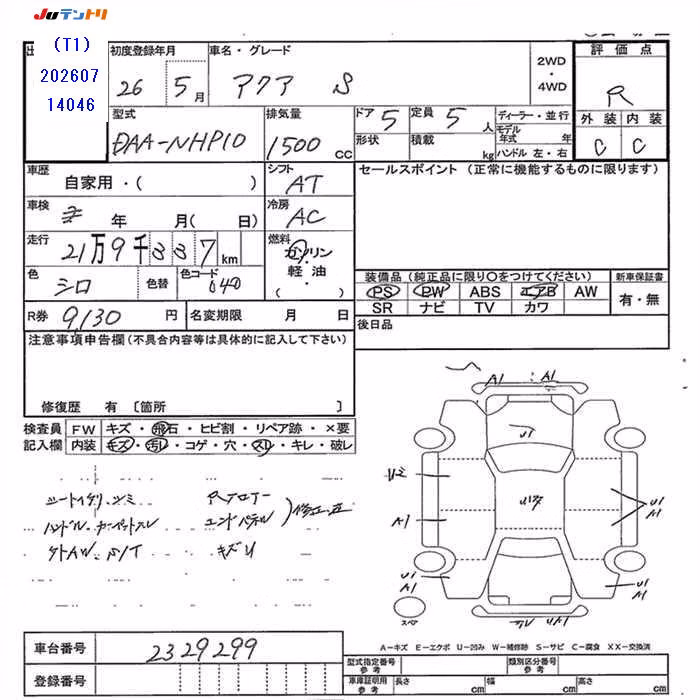 JUテントリ
(T1)
202607
14046
初度登録年月
26 5月
車名・グレード
アクア S
2WD
・
4WD
評価点
R
外装 内装
C C
型式
DAA-NHP10
排気量
1500 CC
ドア 5
形状
定員 5 人
積載 kg
ディーラー・並行
モデル年式 年
ハンドル 左・右
車歴
自家用・( )
シフト
AT
車検
年 月( 日)
冷房
AC
走行
21万9千337km
燃料
ガソリン
軽油・
( )
色
シロ
色替
色コード
040
R券 9,130 円
名変期限 月 日
セールスポイント (正常に機能するものに限ります)
装備品 (純正品に限り〇をつけてください)
PS PW ABS エアB AW
SR ナビ TV カワ
新車保証書
有・無
後日品
注意事項申告欄(不具合内容等は具体的に記入して下さい)
修復歴 有 〔箇所 〕
検査員
記入欄
FW キズ・飛石・ヒビ割・リペア跡・×要
内装 キズ・汚レ・コゲ・穴・スレ・キレ・破レ
ハンドル カーペットスレ
Rフロアー
エンドパネル
キズU
A1 A1
U1
A1
U1
A1
U1
A1
U1
A1
スペア
A-キズ E-エクボ U-凹み W-補修跡 S-サビ C-腐食 XX-交換済
車台番号 2329299
登録番号
型式指定番号
参考
類別区分番号
参考
車庫証明用
参考
長さ cm 幅 cm 高さ cm